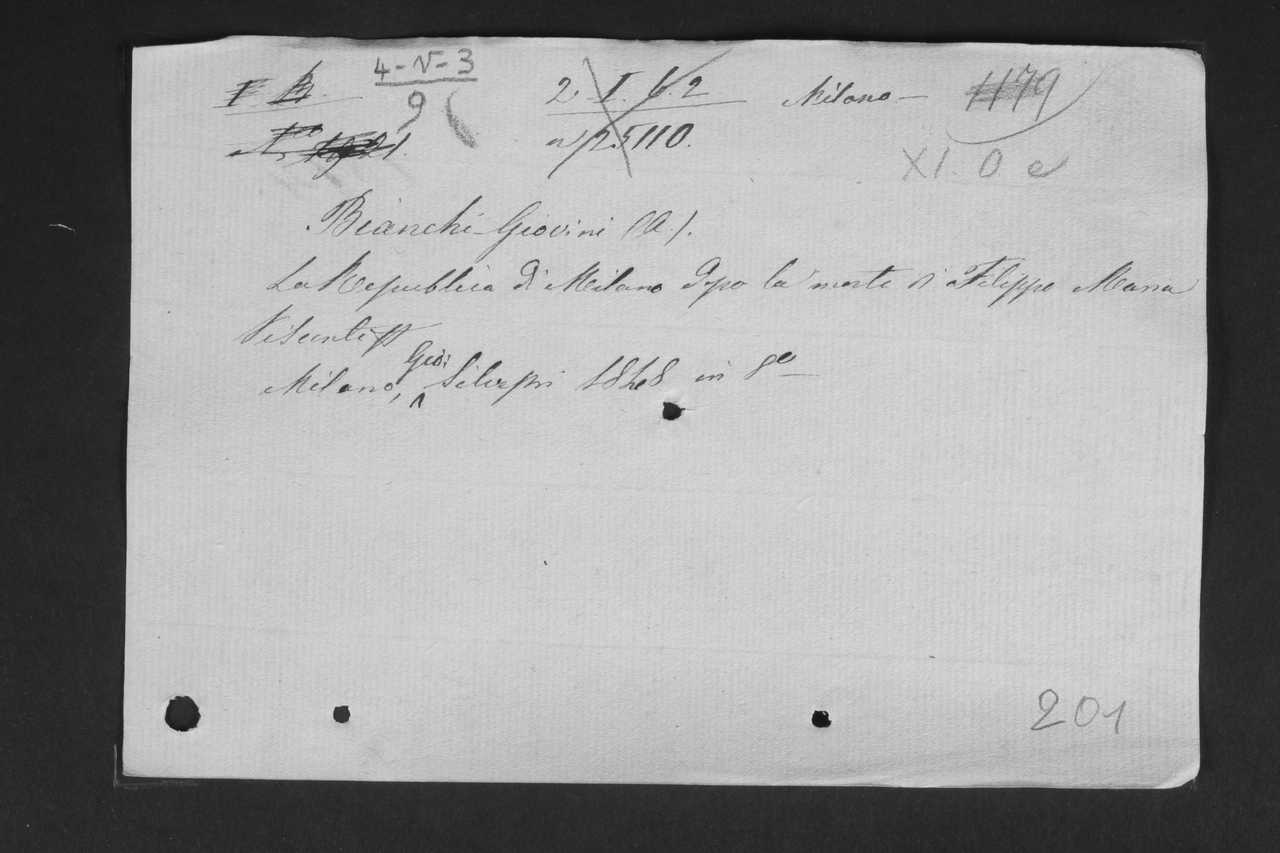 4-V-3
9
2 I. 6 2
n/25110.
Milano —
1179
XI. O e
Bianchi-Giovini (A.).
La Republica di Milano dopo la morte di Filippo Maria
Visconti
Milano, Gio: Silvestri 1848 in 8º
201